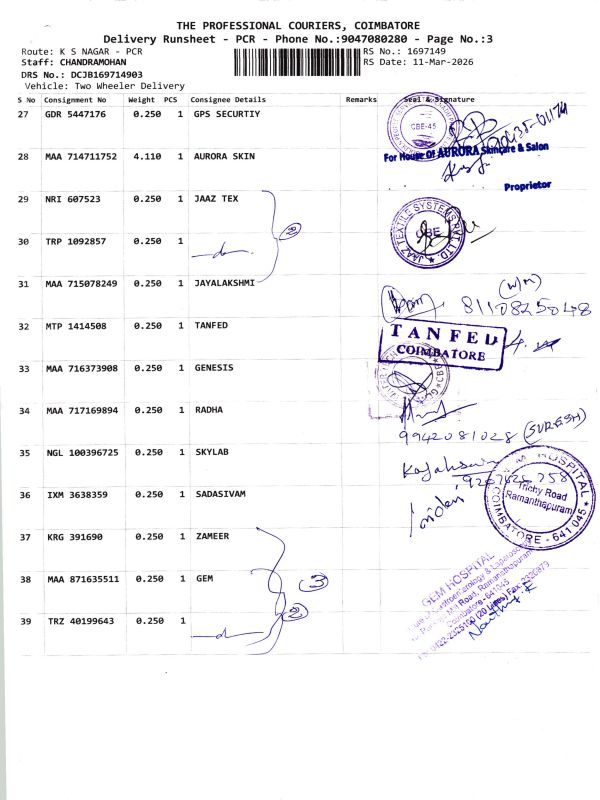 THE PROFESSIONAL COURIERS, COIMBATORE
Delivery Runsheet - PCR - Phone No.:9047080280 - Page No.:3
Route: K S NAGAR - PCR
RS No.: 1697149
Staff: CHANDRAMOHAN
RS Date: 11-Mar-2026
DRS No.: DCJB169714903
Vehicle: Two Wheeler Delivery
S No Consignment No Weight PCS Consignee Details Remarks Seal & Signature
27 GDR 5447176 0.250 1 GPS SECURTIY
CBE-45
28 MAA 714711752 4.110 1 AURORA SKIN
For House Of AURORA Skincare & Salon
Proprietor
29 NRI 607523 0.250 1 JAAZ TEX
JAAZ TEXTILE SYSTEMS PVT. LTD.
CBE
30 TRP 1092857 0.250 1
31 MAA 715078249 0.250 1 JAYALAKSHMI
8110825048
32 MTP 1414508 0.250 1 TANFED
TANFED
COIMBATORE
33 MAA 716373908 0.250 1 GENESIS
34 MAA 717169894 0.250 1 RADHA
9942081028 (SURESH)
35 NGL 100396725 0.250 1 SKYLAB
36 IXM 3638359 0.250 1 SADASIVAM
HOSPITAL
Trichy Road
Ramanathapuram
COIMBATORE - 641 045
37 KRG 391690 0.250 1 ZAMEER
38 MAA 871635511 0.250 1 GEM
3
GEM HOSPITAL
Coimbatore - 641045
39 TRZ 40199643 0.250 1
2